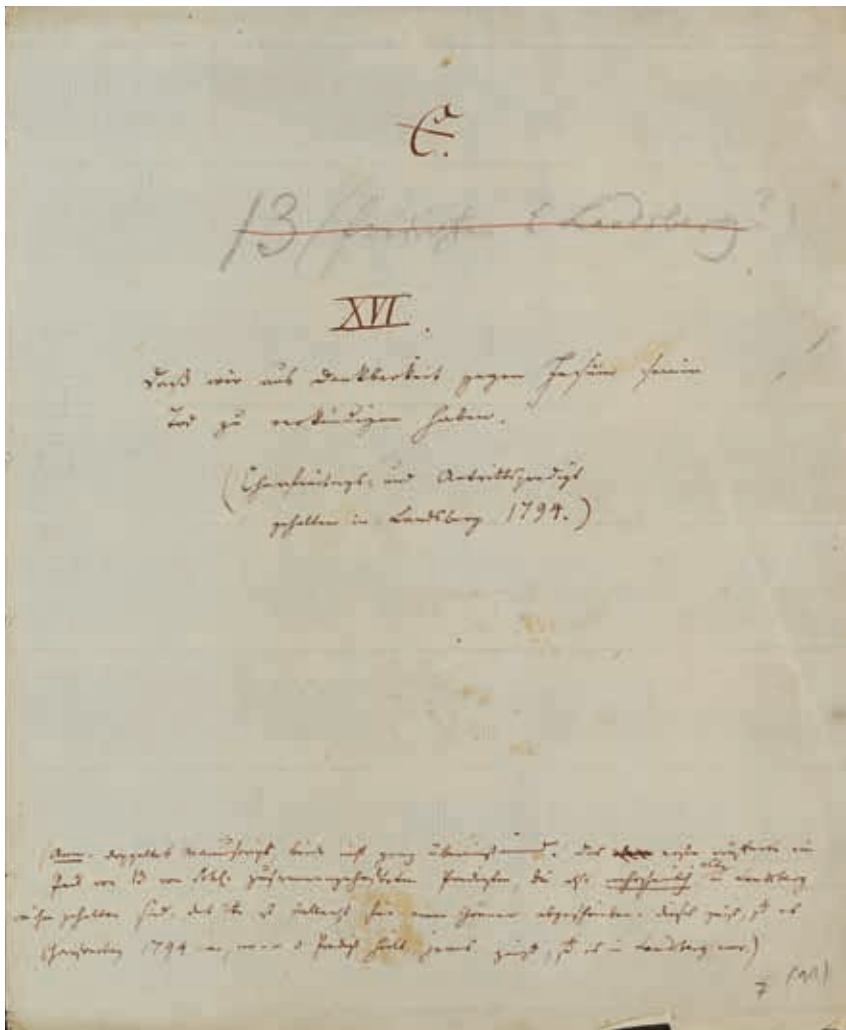 E.
13 Predigten Landsberg?
XVI.
Daß wir aus Dankbarkeit gegen Jesum seinen
Tod zu verkündigen haben.
(Charfreitags- und Antrittspredigt
gehalten in Landsberg 1794.)
(Anm. doppeltes Manuscript, beide nicht ganz übereinstimmend. Das erste
13 von zusammengehefteten Predigten, die wahrscheinlich alle in Landsberg
gehalten sind, das ist vielleicht für einen Gönner abgeschrieben. dieses zeigt, daß es
Charfreitag 1794 war, jenes zeigt, daß es in Landsberg war.)
7